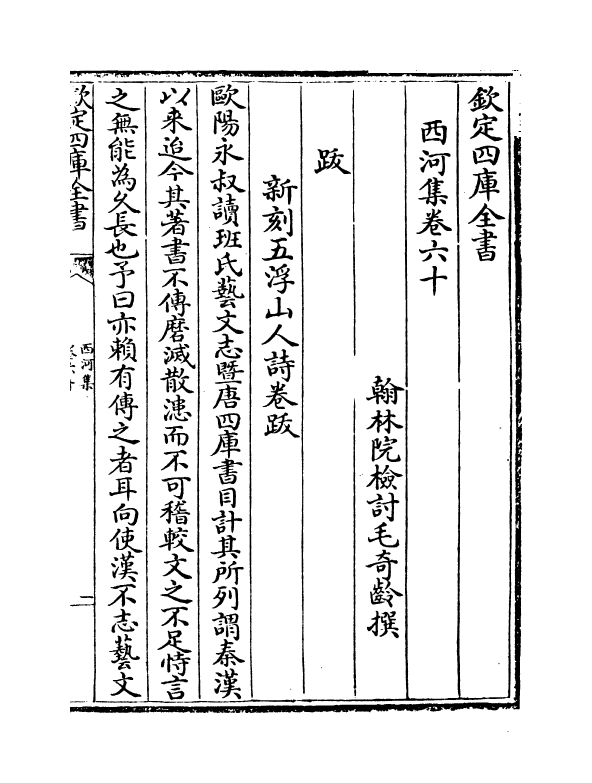 欽定四庫全書
西河集卷六十
翰林院檢討毛奇齡撰
跋
新刻五浮山人詩卷跋
歐陽永叔讀班氏藝文志暨唐四庫書目計其所列謂秦漢
以来迨今其著書不傳磨滅散漶而不可稽較文之不足恃言
之無能為久長也予曰亦賴有傳之者耳向使漢不志藝文
欽定四庫全書
西河集
卷六十
一